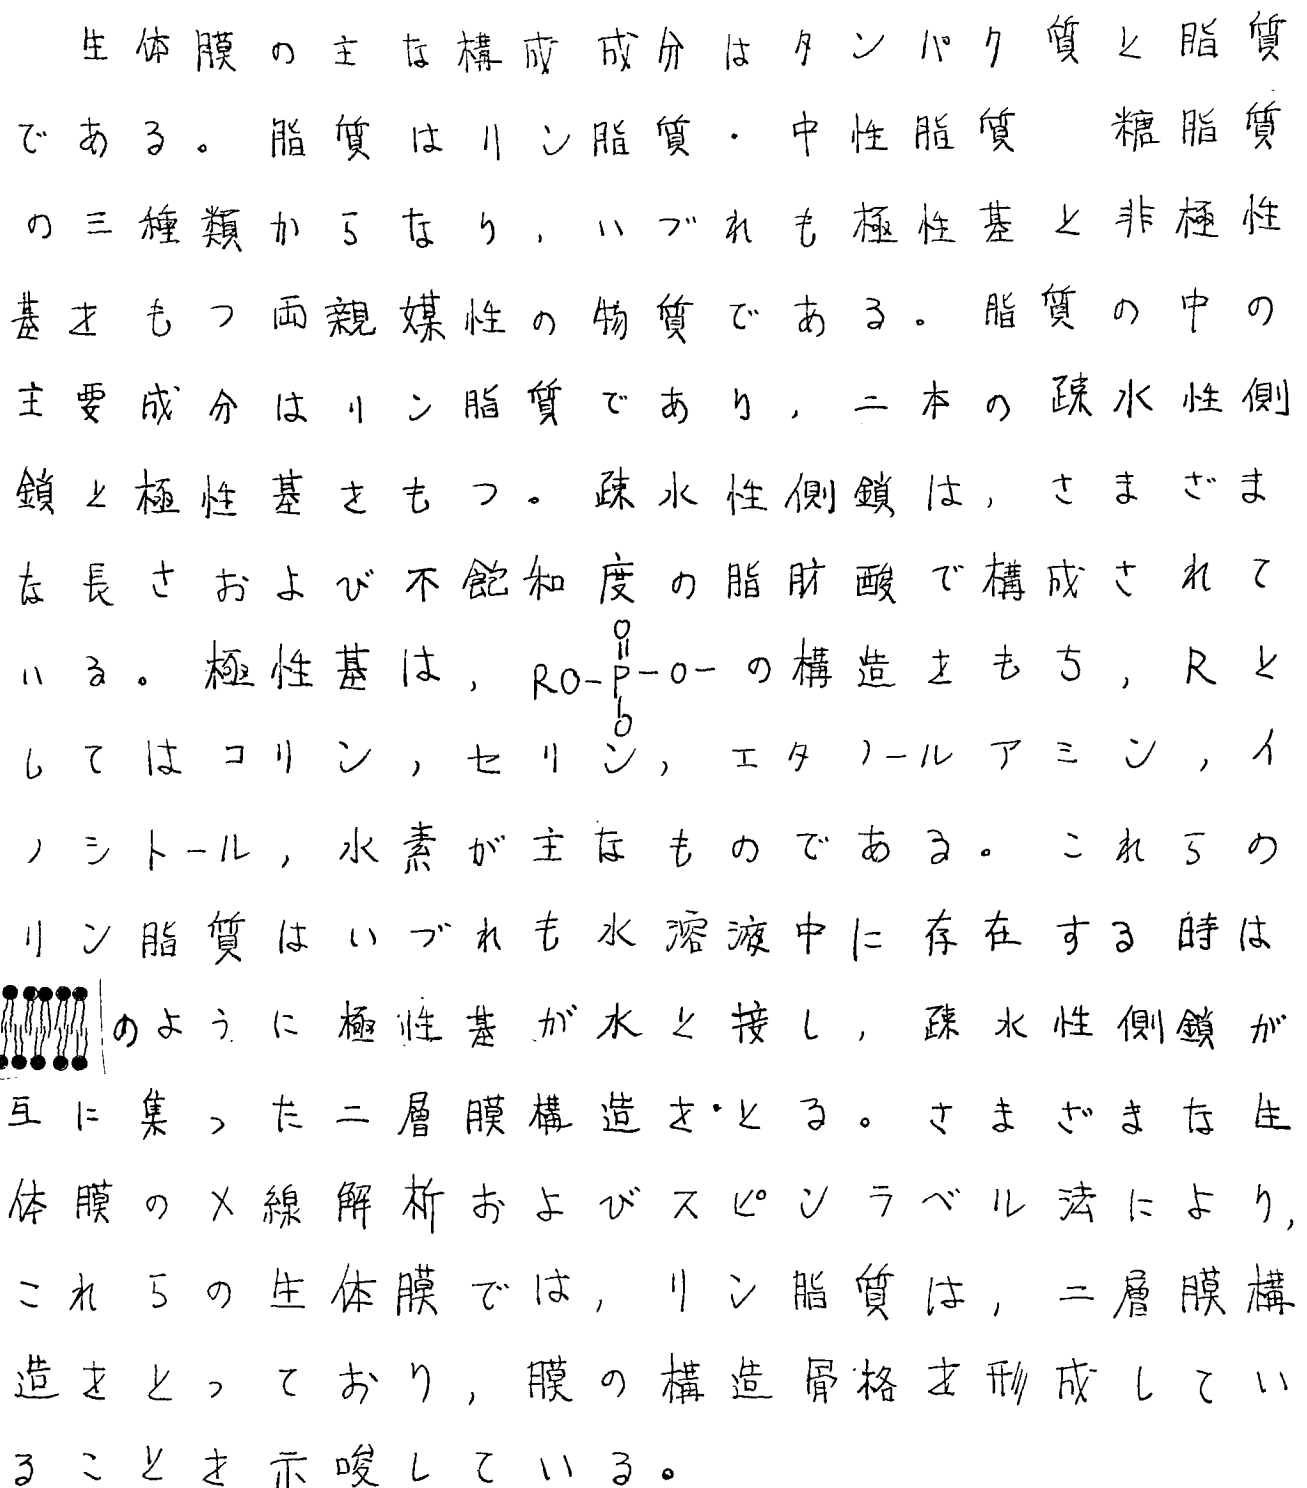 生体膜の主な構成成分はタンパク質と脂質
である。脂質はリン脂質・中性脂質 糖脂質
の三種類からなり，いづれも極性基と非極性
基をもつ両親媒性の物質である。脂質の中の
主要成分はリン脂質であり，二本の疎水性側
鎖と極性基をもつ。疎水性側鎖は，さまざま
な長さおよび不飽和度の脂肪酸で構成されて
いる。極性基は，RO-P(=O)(-O)-O-の構造をもち，Rと
してはコリン，セリン，エタノールアミン，イ
ノシトール，水素が主なものである。これらの
リン脂質はいづれも水溶液中に存在する時は
のように極性基が水と接し，疎水性側鎖が
互に集った二層膜構造をとる。さまざまな生
体膜のX線解析およびスピンラベル法により，
これらの生体膜では，リン脂質は，二層膜構
造をとっており，膜の構造骨格を形成してい
ることを示唆している。